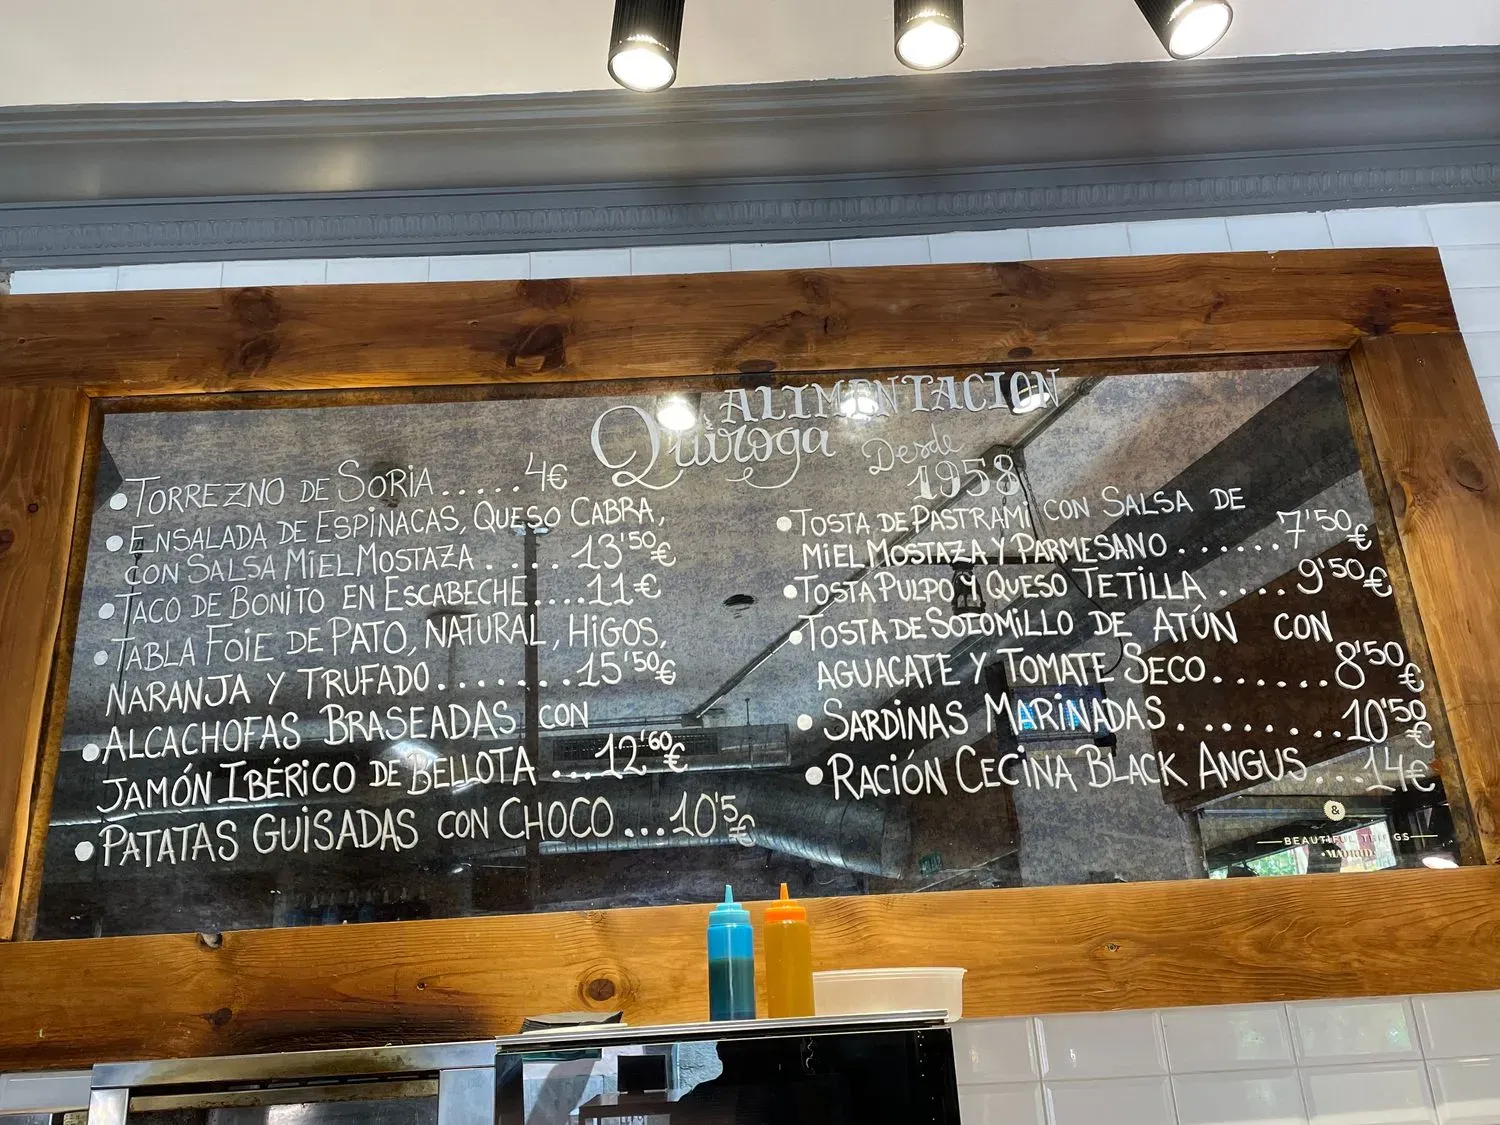 ALIMENTACION
Quiroga Desde
1958
• TORREZNO DE SORIA.....4€
• ENSALADA DE ESPINACAS, QUESO CABRA,
CON SALSA MIEL MOSTAZA.....13'50€
• TACO DE BONITO EN ESCABECHE....11€
• TABLA FOIE DE PATO, NATURAL, HIGOS,
NARANJA Y TRUFADO.......15'50€
• ALCACHOFAS BRASEADAS CON
JAMÓN IBÉRICO DE BELLOTA...12'60€
• PATATAS GUISADAS CON CHOCO...10'5€
• TOSTA DE PASTRAMI CON SALSA DE
MIEL MOSTAZA Y PARMESANO......7'50€
• TOSTA PULPO Y QUESO TETILLA....9'50€
• TOSTA DE SOLOMILLO DE ATÚN CON
AGUACATE Y TOMATE SECO......8'50€
• SARDINAS MARINADAS.......10'50€
• RACIÓN CECINA BLACK ANGUS...14€
&
BEAUTIFUL THINGS
•MADRID•